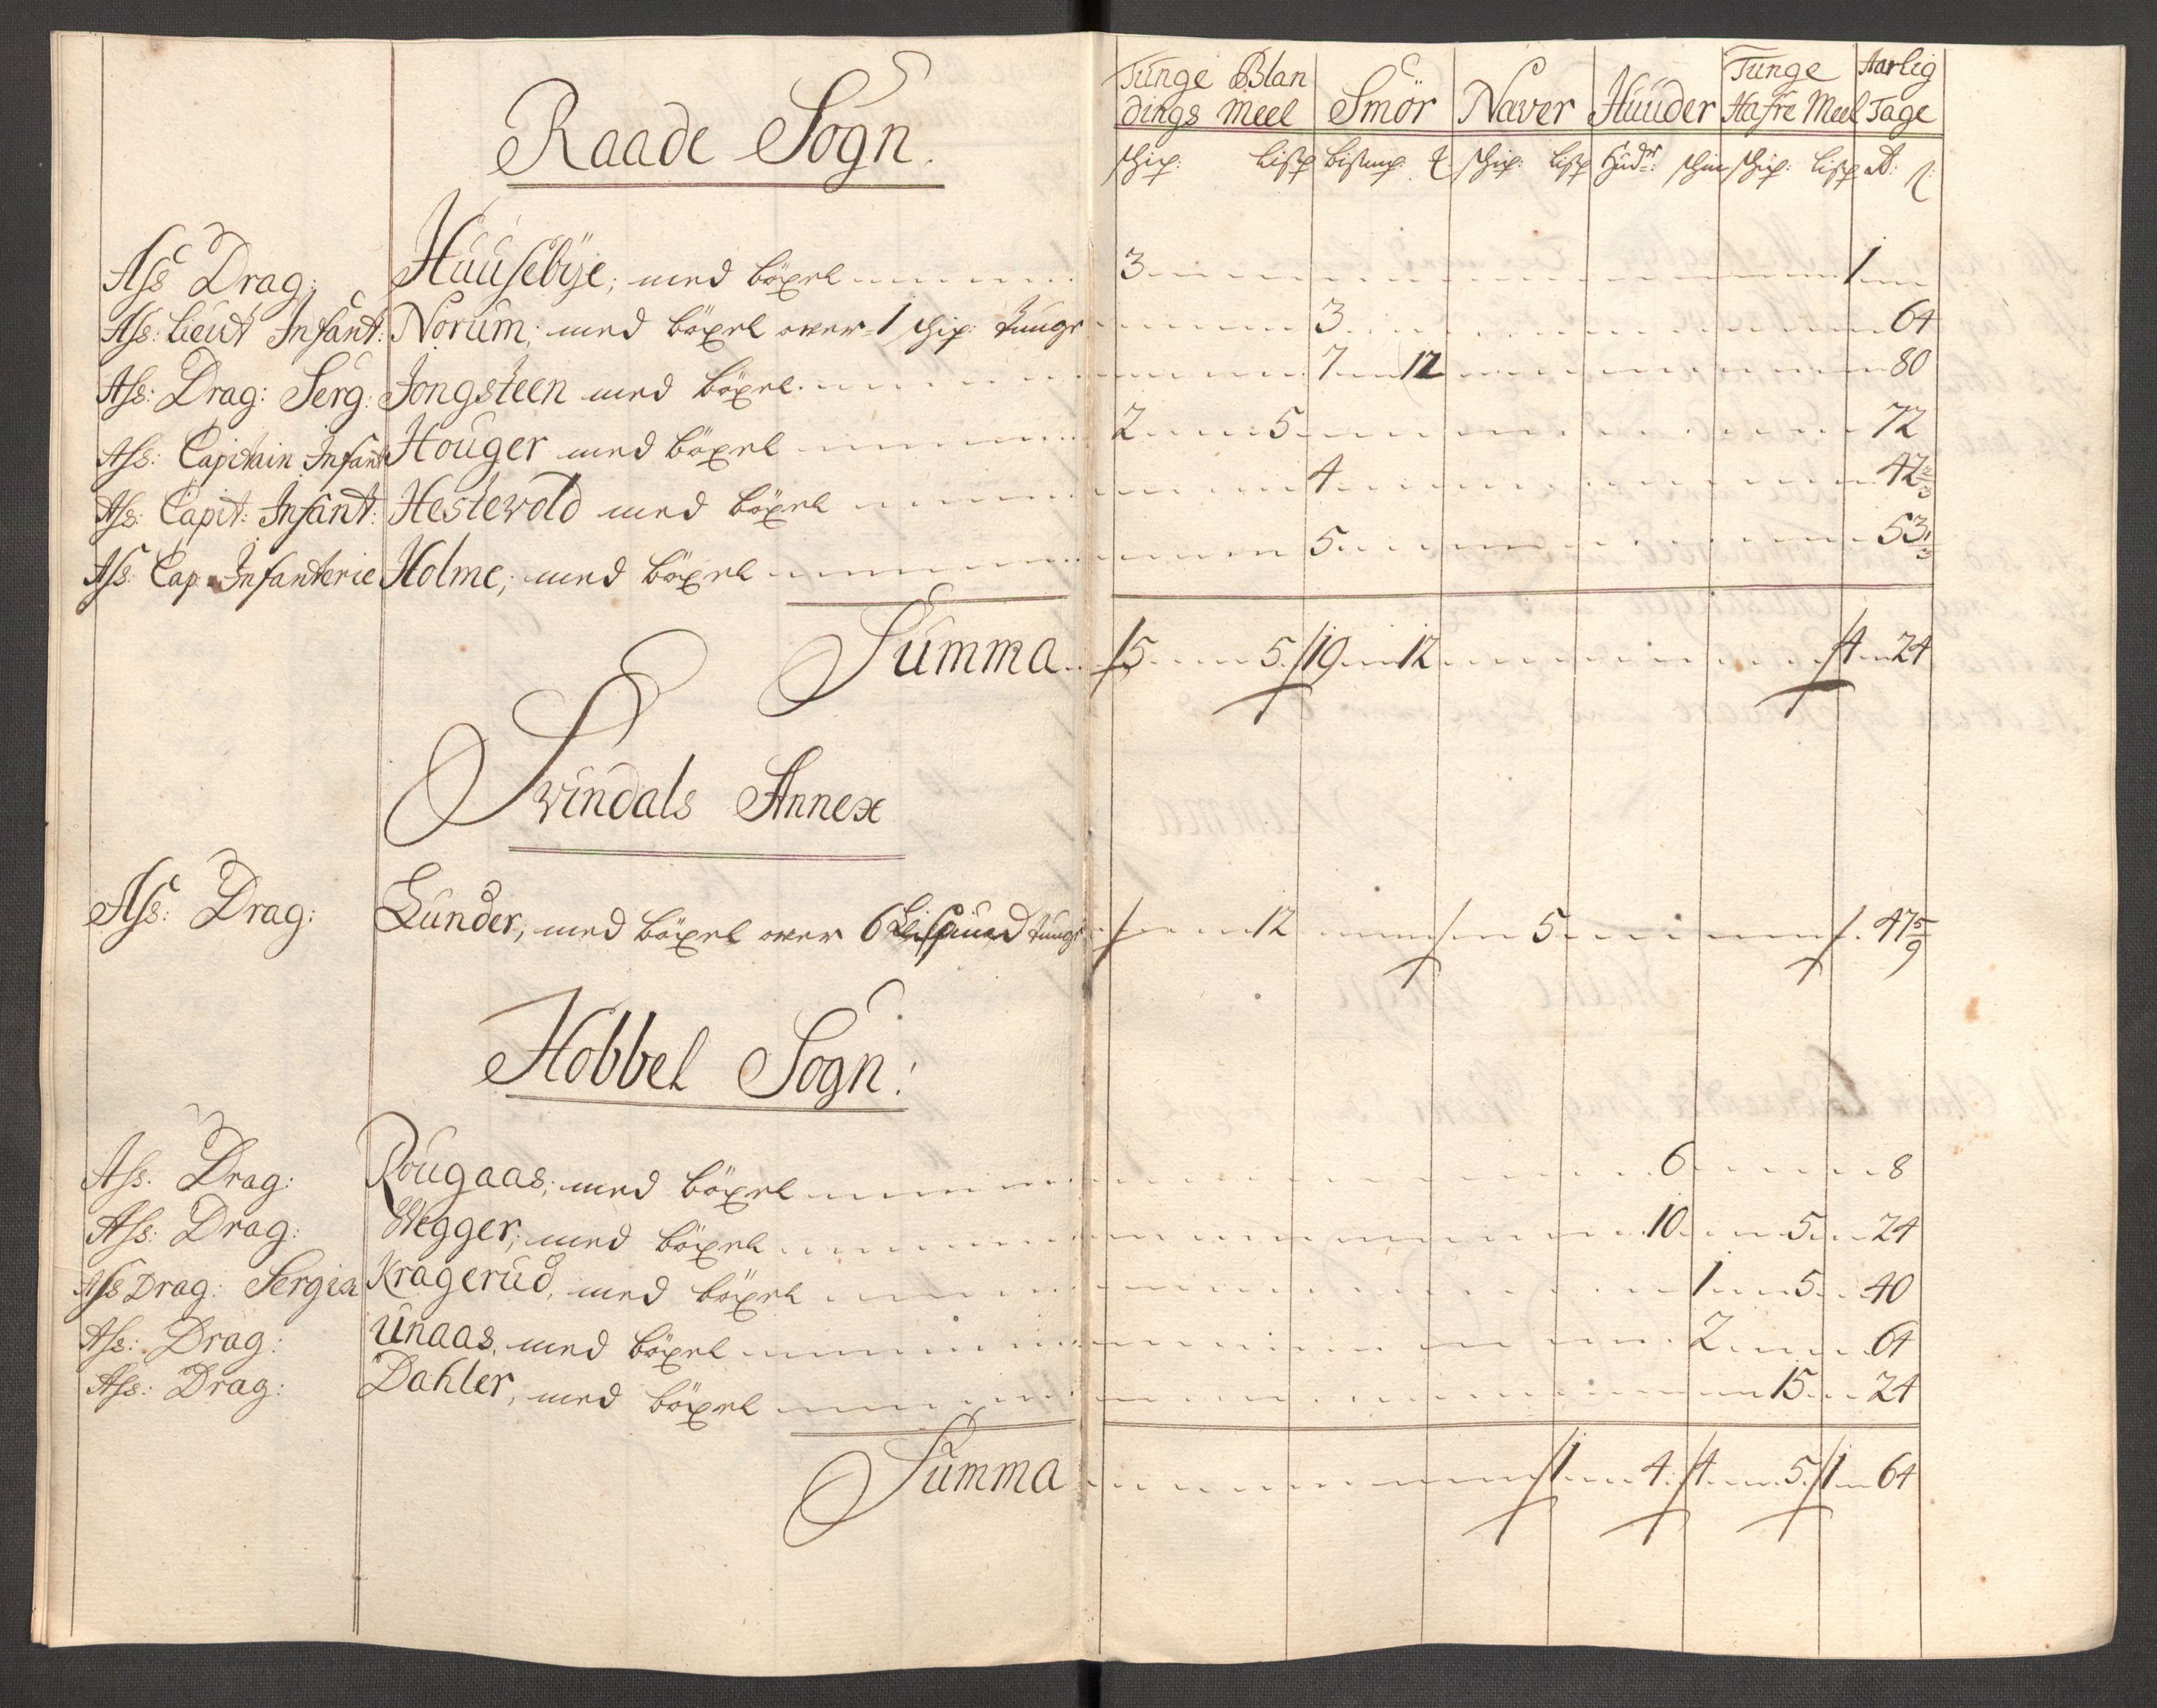 Tunge Blan Tunge Aarlig
dings Meel Smör Naver Huuder Hafre Meel Tage
schip: lisp bismp. schip: lisp Hud: schin schip: lisp
Raade Sogn.
Ass Drag: Huusebÿe; med böxel 3 1
Ass: Lieut Infant: Norum; med böxel over 1 schip: tunge 3 64
Ass: Drag: Serg: Jongsteen med böxel 7 12 80
Ass: Capitain Infant Houger med böxel 2 5 72
Ass: Capit: Infant: Hestevold med böxel 4 42 2/3
Ass: Cap: Infanterie Holme; med böxel 5 53 1/3
Summa 5 5 19 12 4 24
Svindals Annex
Ass: Drag: Lunder; med böxel over 6 Lispund tunge 12 5 47 5/9
Hobbel Sogn:
Ass. Drag: Rougaas; med böxel 6 8
Ass: Drag: Wegger; med böxel 10 5 24
Ass Drag: Sergia Kragerud, med böxel 1 5 40
Ass: Drag: Unaas, med böxel 2 64
Ass: Drag: Dahler, med böxel 15 24
Summa 1 4 4 5 1 64